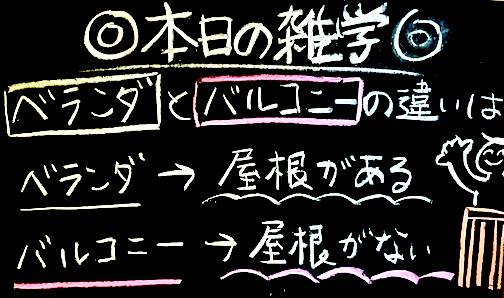 ◎本日の雑学◎
ベランダとバルコニーの違いは
ベランダ→屋根がある
バルコニー→屋根がない